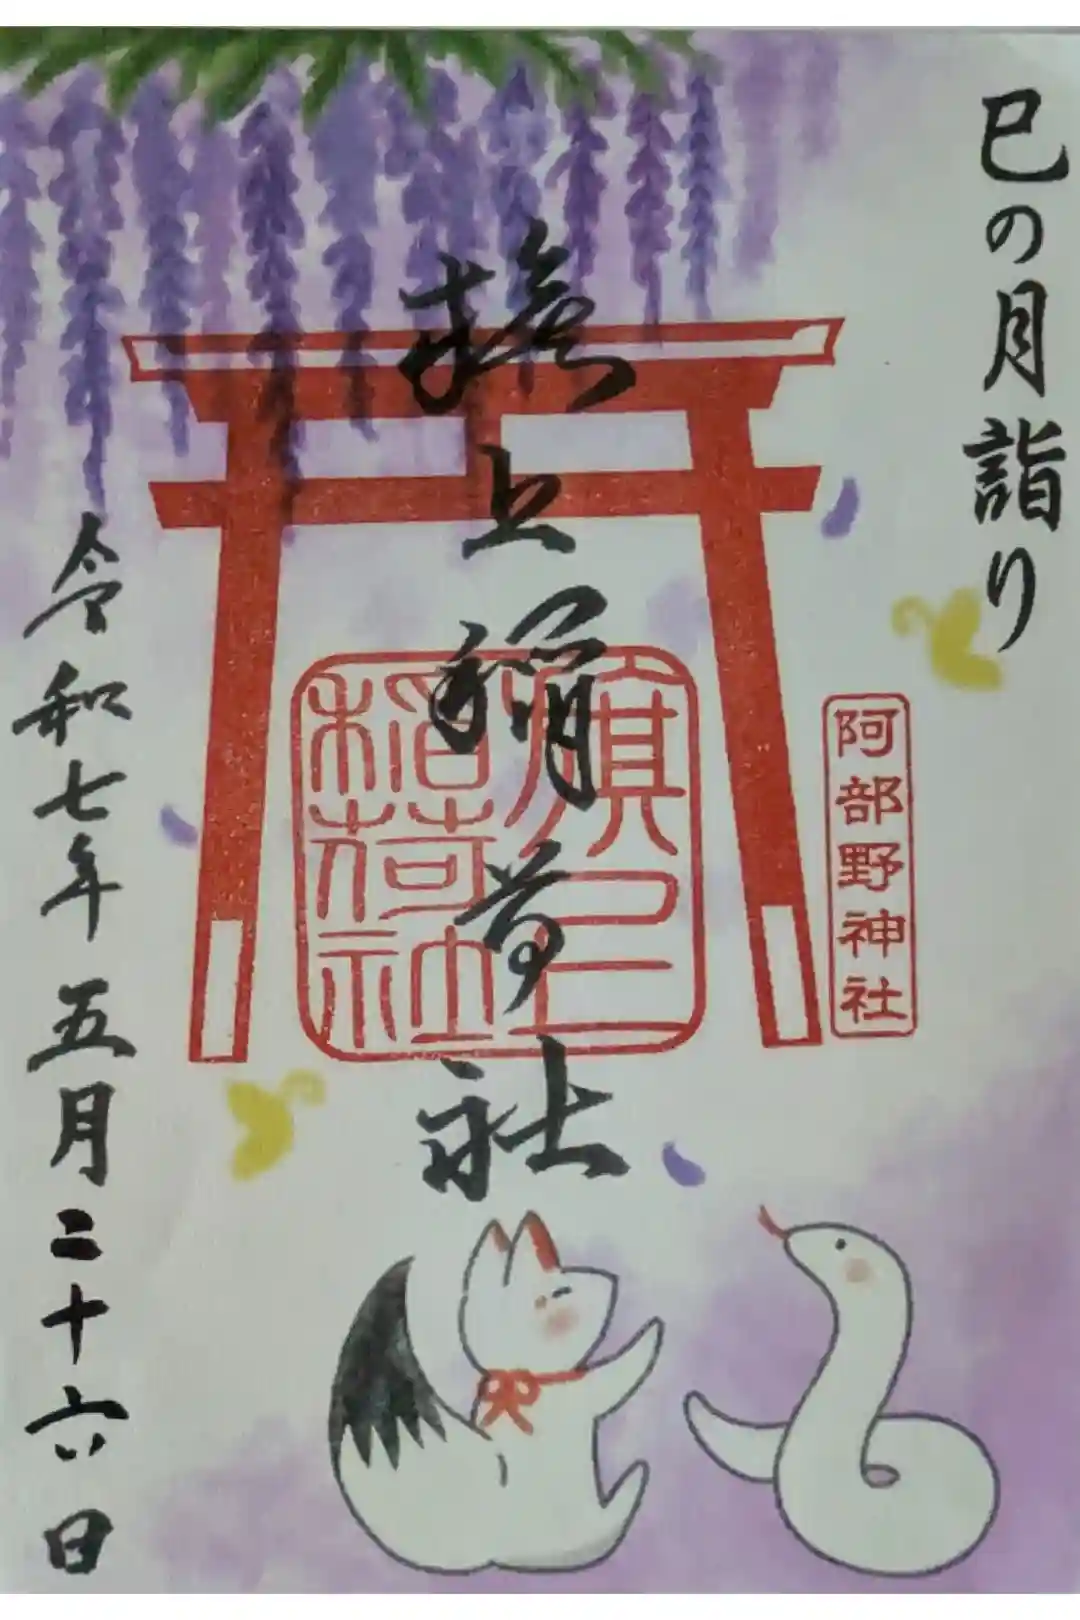 巳の月詣り
阿部野神社
旗上稲荷社
旗上
稲荷社
令和七年五月二十六日